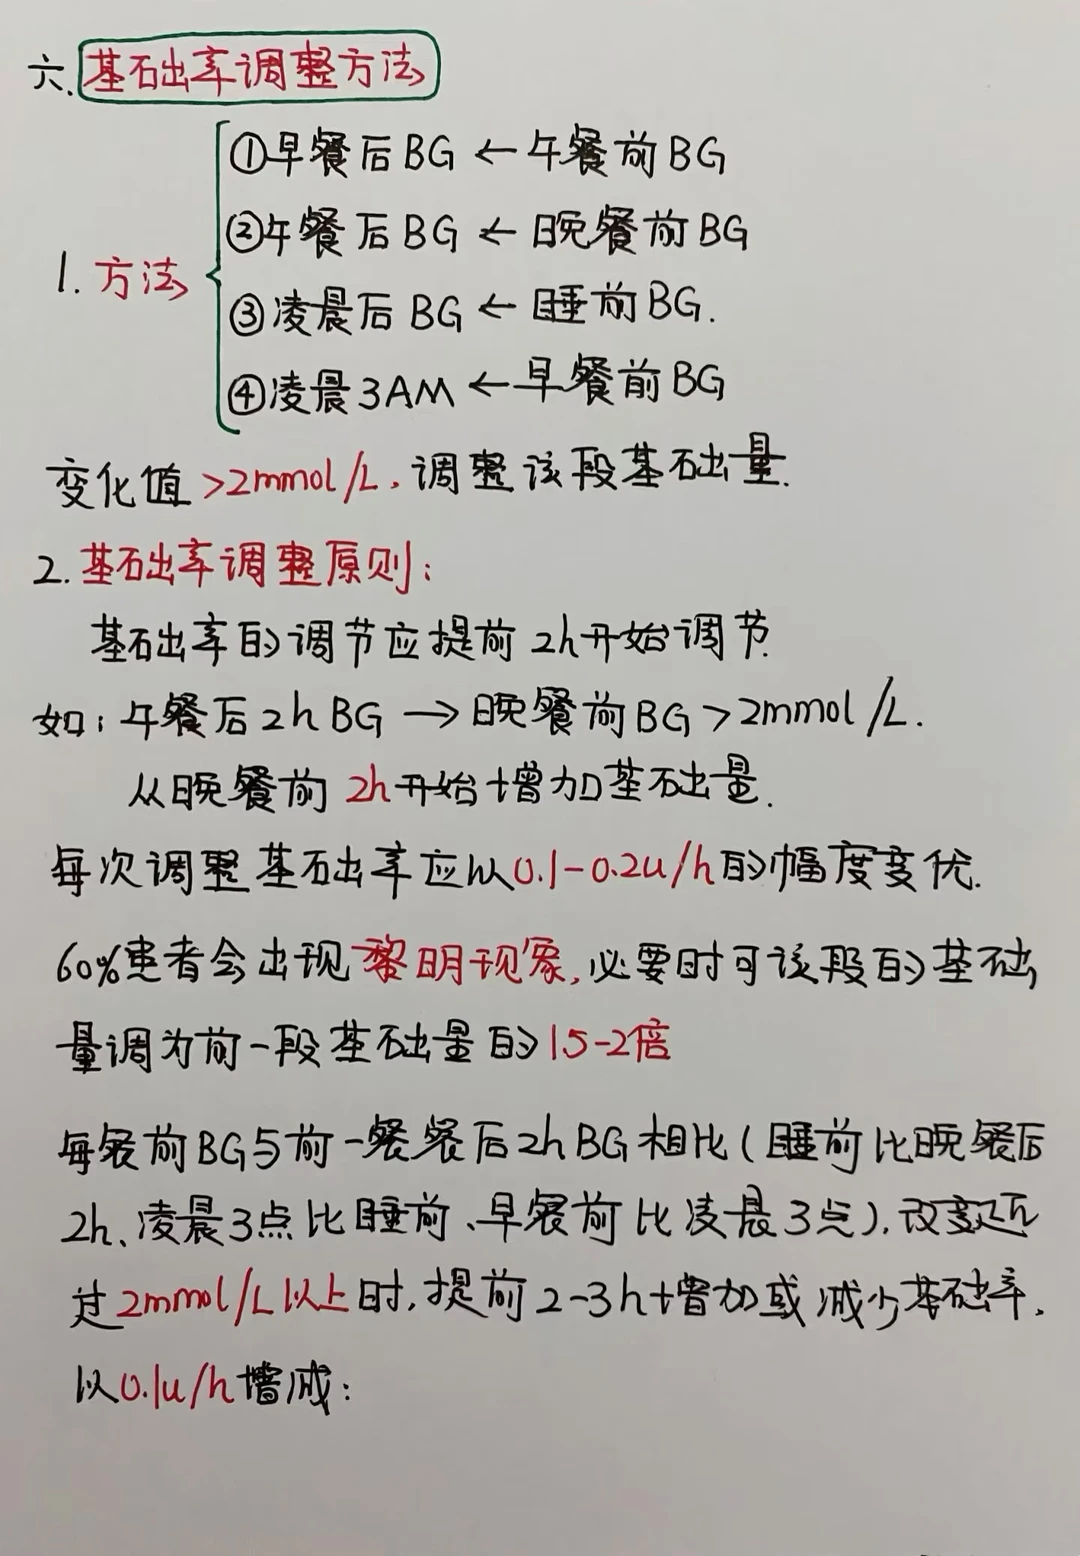 六.基础率调整方法
①早餐后BG ← 午餐前BG
②午餐后BG ← 晚餐前BG
1.方法
③凌晨后BG ← 睡前BG.
④凌晨3AM ← 早餐前BG
变化值>2mmol/L,调整该段基础量.
2.基础率调整原则:
基础率的调节应提前2h开始调节.
如:午餐后2hBG → 晚餐前BG>2mmol/L.
从晚餐前2h开始增加基础量.
每次调整基础率应以0.1-0.2u/h的幅度变优.
60%患者会出现黎明现象,必要时可该段的基础
量调为前一段基础量的1.5-2倍
每餐前BG与前一餐餐后2hBG相比(睡前比晚餐后
2h、凌晨3点比睡前、早餐前比凌晨3点),改变
过2mmol/L以上时,提前2-3h增加或减少基础率,
以0.1u/h增减: